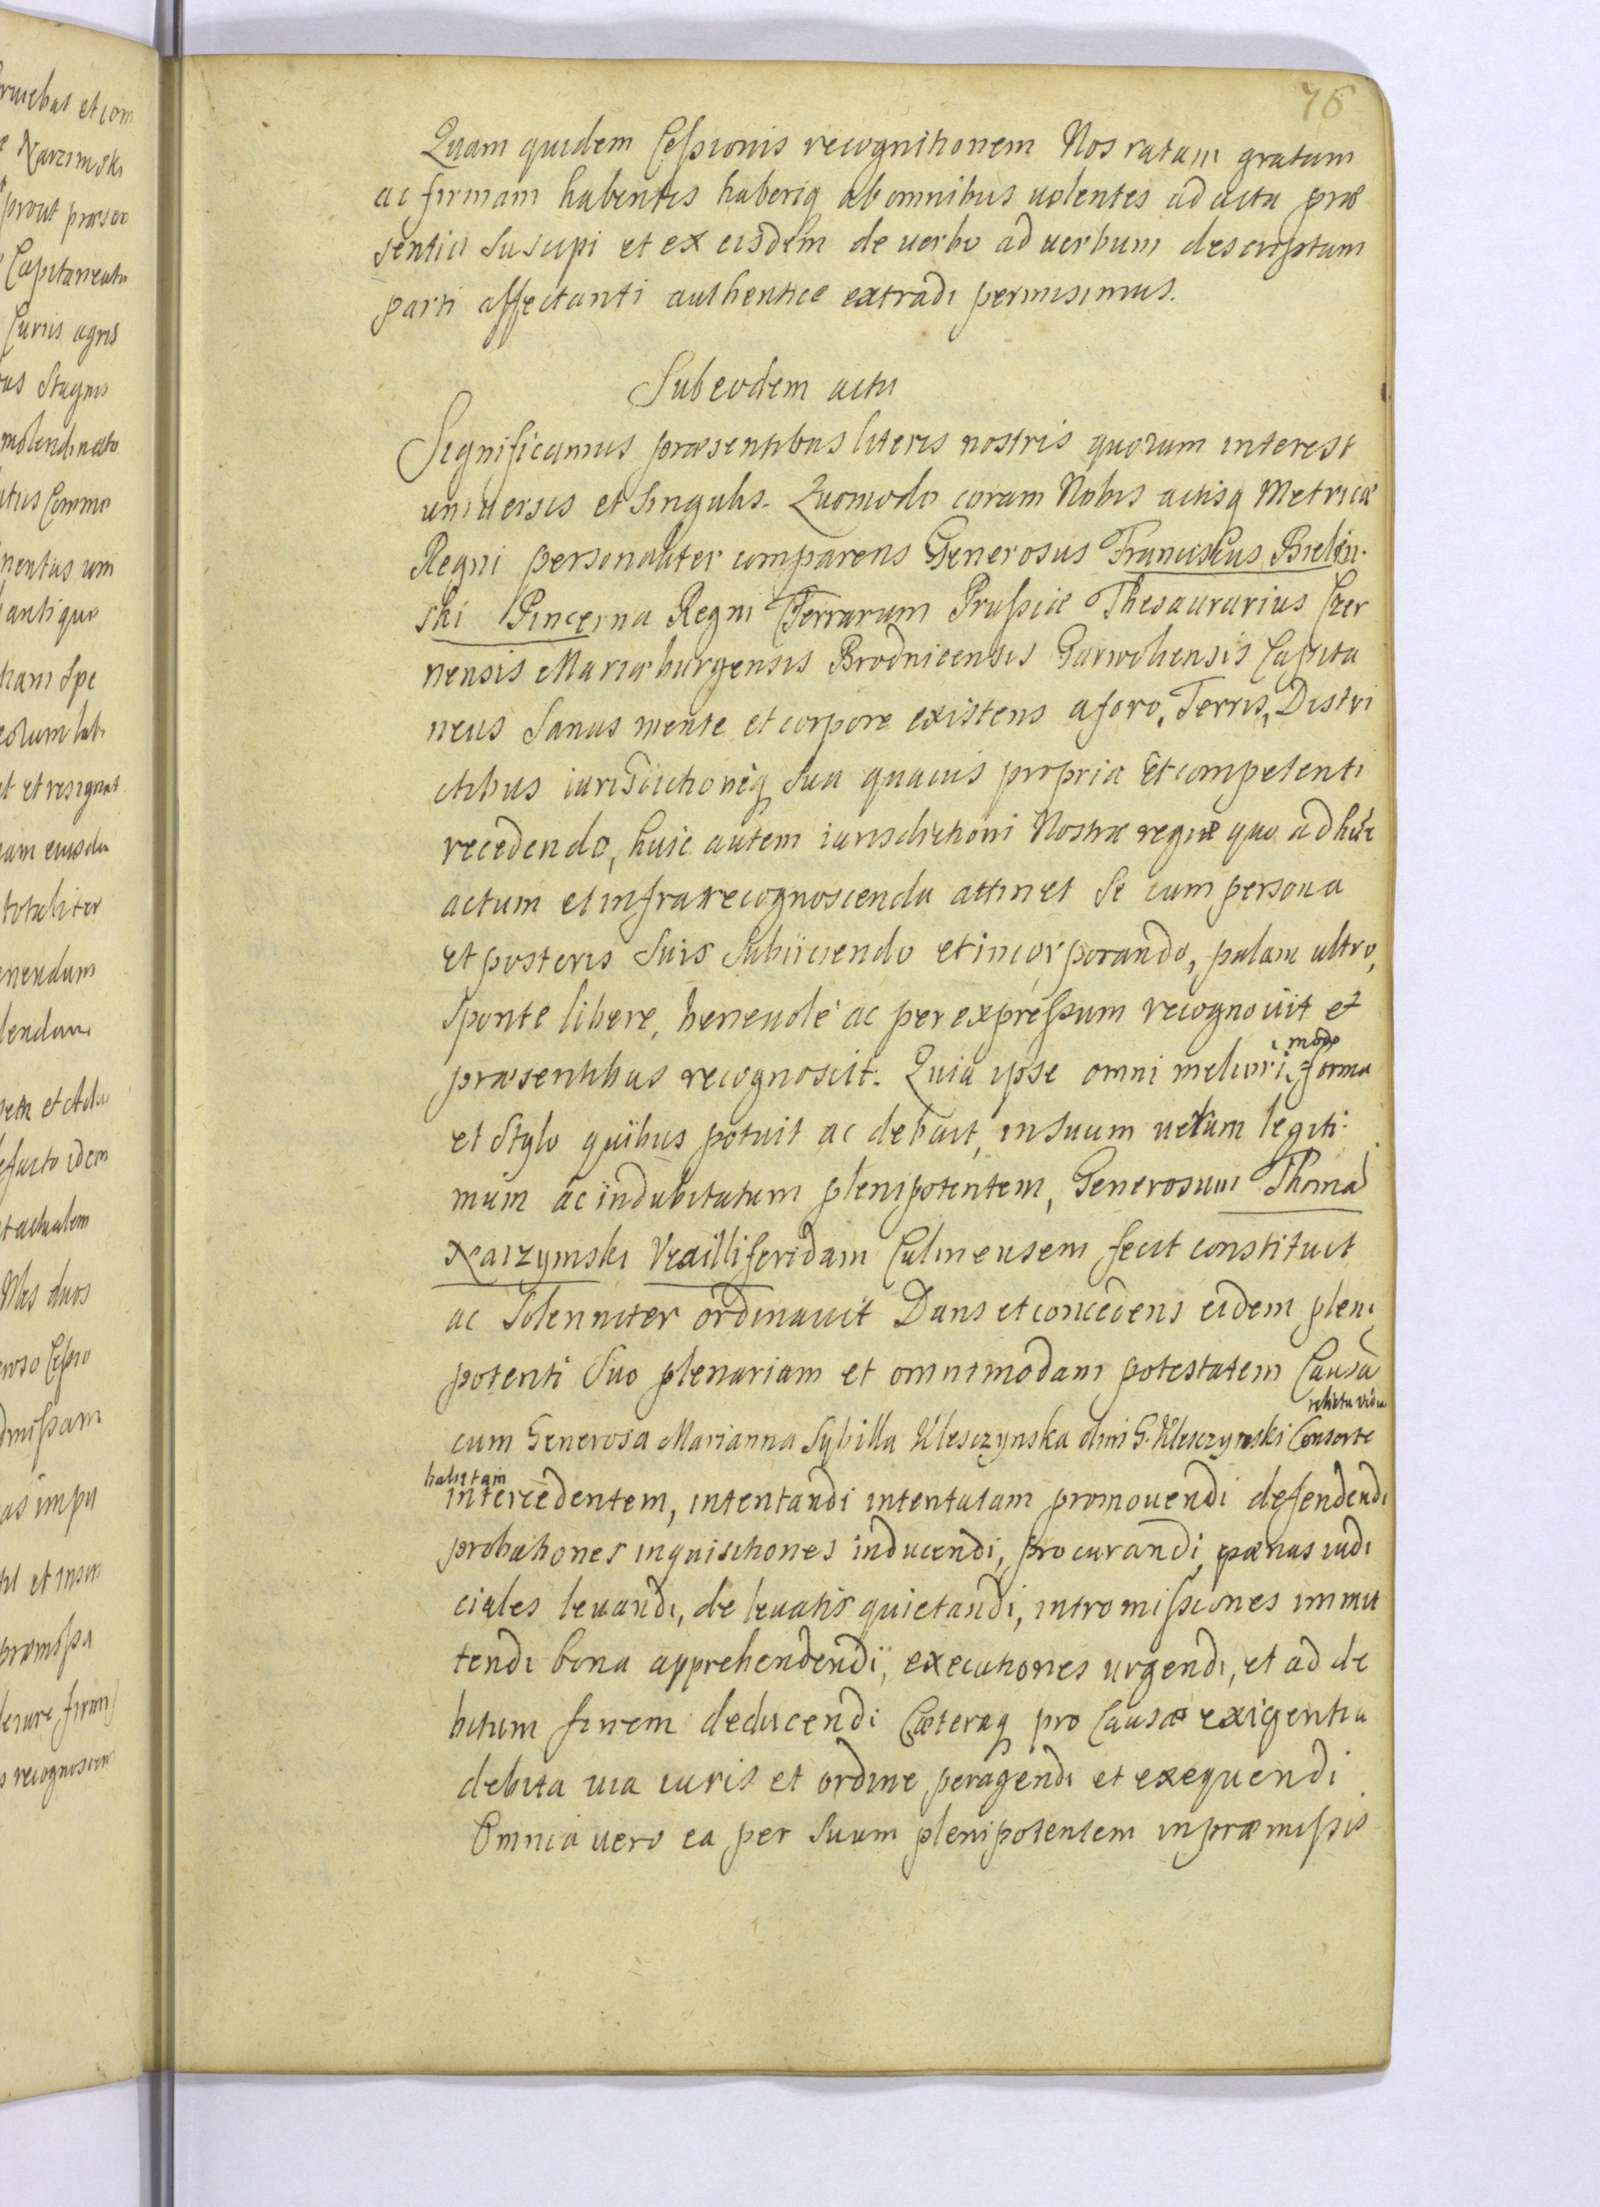 76
Quam quidem Cessionis recognitionem Nos ratam gratam
ac firmam habentes haberiq ab omnibus uolentes ad acta præ
sentia suscipi et ex eisdem de uerbo ad uerbum descriptam
parti affectanti authentice extradi permisimus.
Sub eodem actu
Significamus præsentibus literis nostris quorum interest
uniuersis et singulis. Quomodo coram Nobis actisq Metricæ
Regni personaliter comparens Generosus Franciscus Bielin-
ski Pincerna Regni Terrarum Prussiæ Thesaurarius Czer
nensis Mariæburgensis Brodnicensis Garwoliensis Capita
neus sanus mente et corpore existens a foro, Terris, Distri
ctibus iurisdictioneq sua quauis propria et competenti
recedendo, huic autem iurisdictioni Nostræ regiæ quo ad hũc
actum et infra recognoscenda attinet se cum persona
et posteris suis subiiciendo et incorporando, palam ultro,
sponte libere, beneuole ac per expressum recognouit et
præsentibus recognoscit. Quia ipse omni meliori forma
modo
et stylo quibus potuit ac debuit, in suum uerum legiti-
mum ac indubitatum plenipotentem, Generosum Thomã
Narzymski Vexilliferidam Culmensem fecit constituit
ac solenniter ordinauit Dans et concedens eidem pleni
potenti suo plenariam et omnimodam potestatem Causã
relicta vidua
cum Generosa Marianna Sybilla Klesczynska olim G. Klesczynski Consorte
habitam
intercedentem, intentandi intentatam promouendi defendendi
probationes inquisitiones inducendi, procurandi, pœnas iudi
ciales leuandi, de leuatis quietandi, intromissiones immit
tendi bona apprehendendi, executiones urgendi, et ad de
bitum finem deducendi Cæteraq pro Causæ exigentia
debita uia iuris et ordine peragendi et exequendi
Omnia uero ea per suum plenipotentem in præmissis